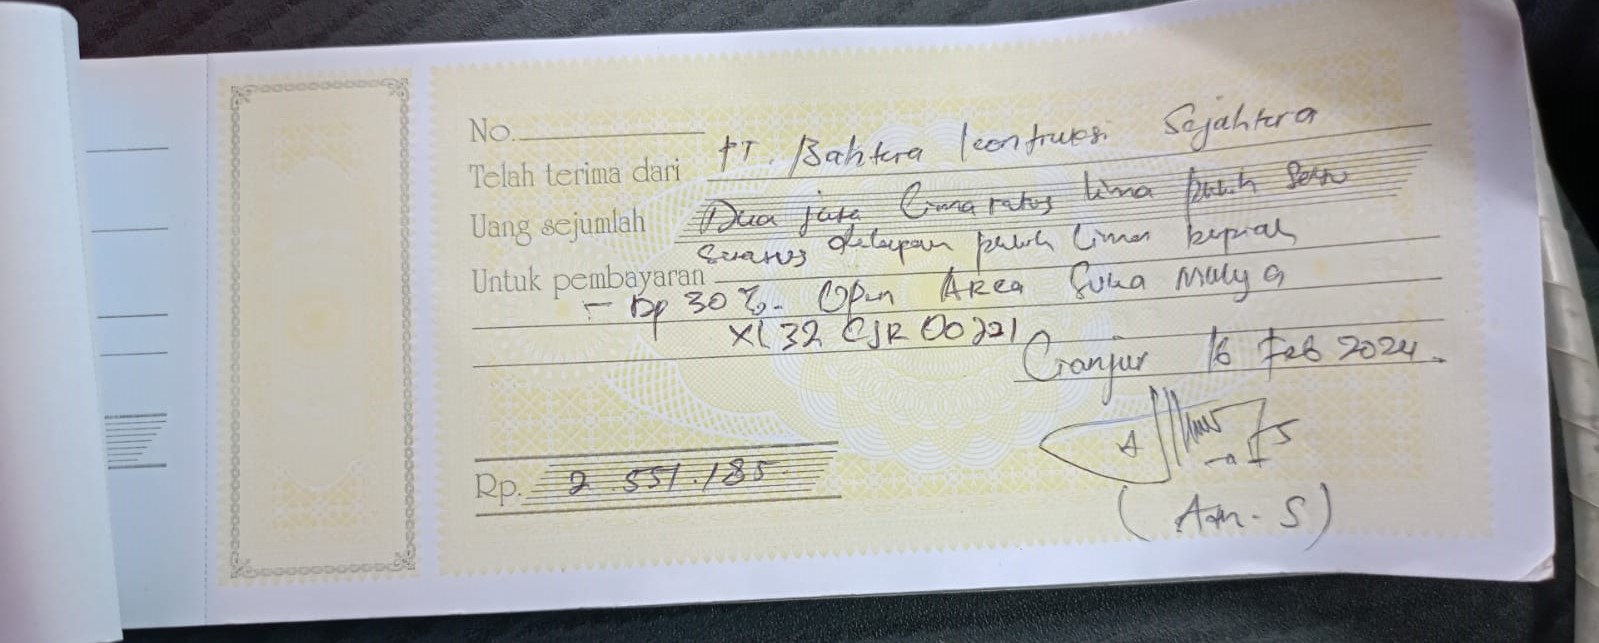 No.
Telah terima dari PT. Bahtera Kontruksi Sejahtera
Uang sejumlah Dua juta Lima ratus lima puluh satu
seratus delapan puluh lima rupiah
Untuk pembayaran
- Dp 30 %. Open Area Suka Mulya
XL 32 CJR 00221
Cianjur 16 Feb 2024.
Rp. 2.551.185